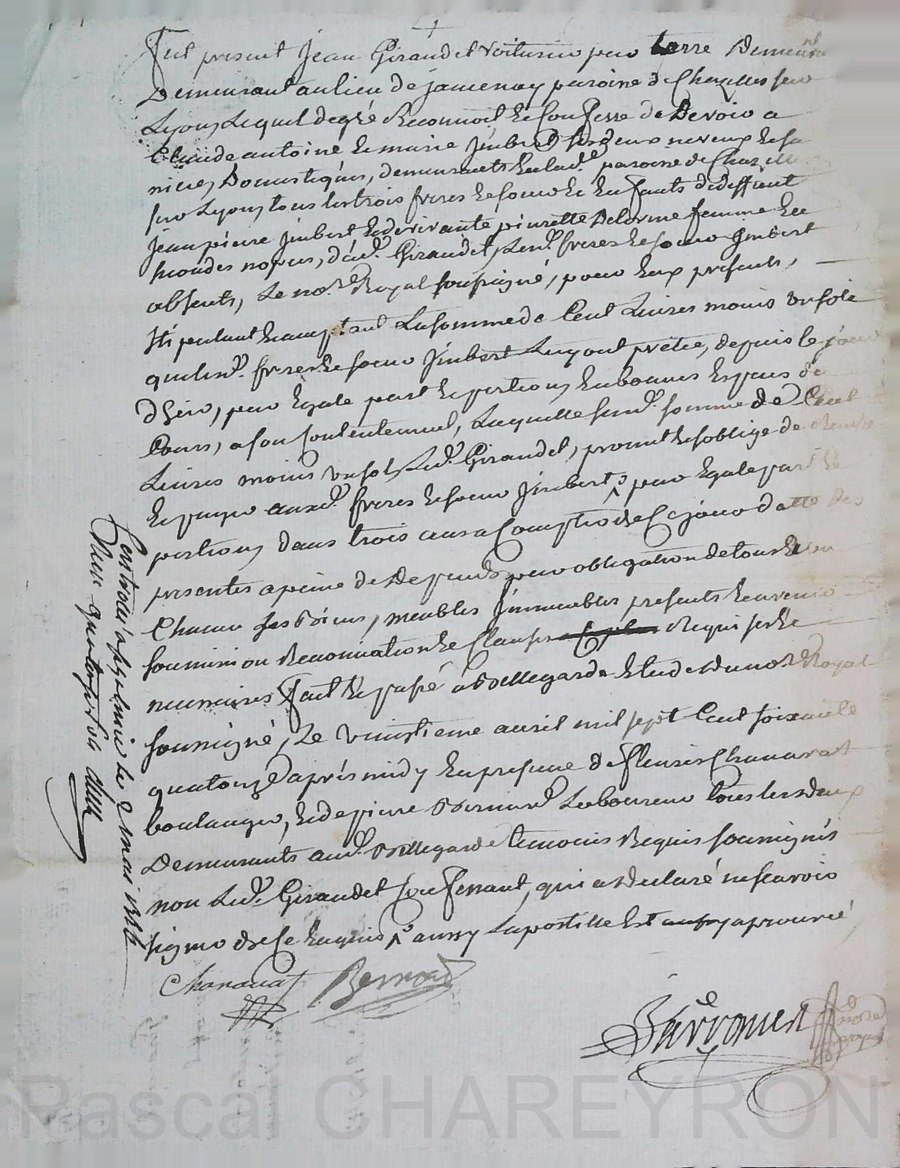 Fut present Jean Giraudet voiturier pour terre
Demeurant au lieu de jamenay paroisse de Chazelles sur
Lyon, Lequel de gré Reconnoit Et Confesse de Devoir a
Claude antoine Et marie jmbert
Domestiques, demeurants En lad.e paroisse de Chazelles
sur Lyon, tous les trois freres Et soeur Et Enfants de deffunt
jean pierre jmbert Et de vivante pierrette Delorme femme En
nopces, dud. Giraudet, Lesd. freres Et soeur jmbert
absents, Le no.re Royal soussigné, pour Eux present,
stipulant Et acceptant La somme de Cent Livres moins un sols
que lesd. freres Et soeur jmbert Luy ont pretée, depuis le jour
d'hier, par Egale part Et portion, En bonnes Especes de
Cours, a son Contentement, Laquelle susd. somme de Cent
Livres moins un sols, Led. Giraudet, promet Et s'oblige de rendre
Et payer auxd. freres Et soeur jmbert, pour Egale part Et
portion, dans trois ans a Compter de Ce jour datte des
presentes a peine de Depends, pour obligation de tous Et un
Chacun ses Biens, meubles jmmeubles presents Et avenir
soumission Renonciation Et Clauses Requises Et
necessaires fait Et passé a Bellegarde Etude du no.re Royal
soussigné, Le vingtieme avril mil sept Cent soixante
quatorze apres midy En presence de fleurie Chanavat
boulanger, Et de pierre Bernard Laboureur tous les deux
Demeurants aud. Bellegarde temoins Requis soussignés
non Led. Giraudet Confessant, qui a declaré ne sçavoir
signer de Ce Enquis aussy Lapostille Est approuvée
Chanavat Bernard
no.re royal
Controlé a le 2 may 1774
Reçu quatorze sols
Pascal CHAREYRON